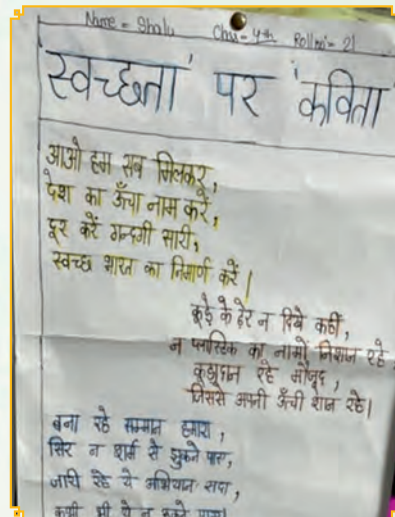 Name = Shalu Class- 4th Roll no = 21
'स्वच्छता' पर 'कविता'
आओ हम सब मिलकर,
देश का ऊँचा नाम करें,
दूर करें गन्दगी सारी,
स्वच्छ भारत का निर्माण करें।
कूड़े के ढ़ेर न दिखे कहीं,
न प्लास्टिक का नामों निशान रहे,
कूड़ादान रहे मौजूद,
जिससे अपनी ऊँची शान रहे।
बना रहे सम्मान हमारा,
सिर न शर्म से झुकने पाए,
जारी रहे ये अभियान सदा,
कभी भी ये न रुकने पाए।